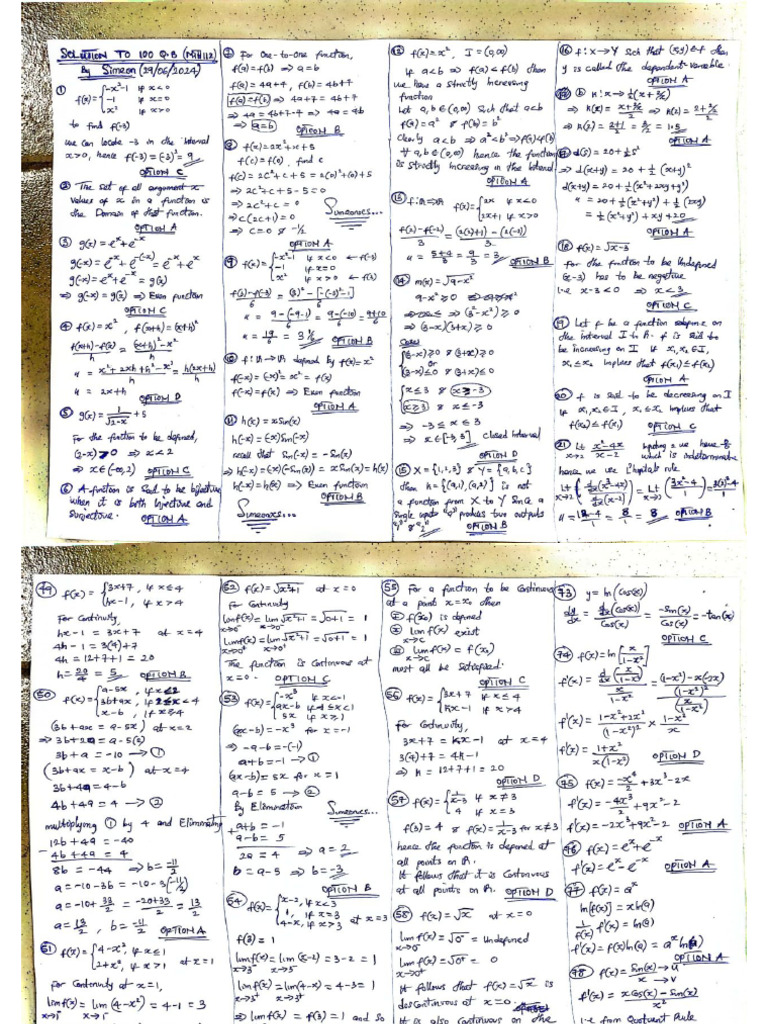 SOLUTION TO 100 Q.B (MTH112)
By Simeon (29/06/2024)
① f(x) = { -x²-1 if x<0
-1 if x=0
x² if x>0
to find f(-3)
we can locate -3 in the interval
x>0, hence f(-3) = (-3)² = 9
OPTION C
② The set of all argument x
values of x in a function is
the Domain of that function.
OPTION A
③ g(x) = eˣ + e⁻ˣ
⇒ g(-x) = g(x) ⇒ Even function
OPTION C
④ f(x) = x², f(x+h) = (x+h)²
f(x+h) - f(x) / h = (x+h)² - x² / h
" = x² + 2xh + h² - x² / h = h(2x+h) / h
" = 2x+h
OPTION D
⑤ g(x) = 1/√(2-x) + 5
For the function to be defined,
(2-x) > 0 ⇒ x < 2
⇒ x ∈ (-∞, 2) OPTION C
⑥ A function is said to be bijective
when it is both injective and
surjective. OPTION A
⑦ For one-to-one function,
f(a) = f(b) ⇒ a = b
f(a) = 4a+7, f(b) = 4b+7
f(a) = f(b) ⇒ 4a+7 = 4b+7
⇒ 4a = 4b+7-7 ⇒ 4a = 4b
⇒ a = b
OPTION B
f(x) = 2x² + x + 5
f(c) = f(0), find c
f(c) = 2c² + c + 5 = 2(0)² + (0) + 5
⇒ 2c² + c + 5 - 5 = 0
⇒ 2c² + c = 0
⇒ c(2c+1) = 0
⇒ c = 0 & -1/2
Simeonics...
OPTION A
⑨ f(x) = { -x²-1 if x<0 ← f(-3)
-1 if x=0
x² if x>0 ← f(3)
f(3) - f(-3) / 6 = (3)² - [-(-3)²-1] / 6
" = 9-(-9-1) / 6 = 9-(-10) / 6 = 9+10 / 6
" = 19/6 = 3 1/6
OPTION B
⑩ f: ℝ → ℝ defined by f(x) = x²
f(-x) = (-x)² = x² = f(x)
f(-x) = f(x) ⇒ Even function
OPTION A
⑪ h(x) = x Sin(x)
h(-x) = (-x) Sin(-x)
recall that Sin(-x) = -Sin(x)
⇒ h(-x) = (-x)(-Sin(x)) = x Sin(x) = h(x)
h(-x) = h(x) ⇒ Even function
OPTION B
Simeonics...
f(x) = x², I = (0,∞)
if a<b ⇒ f(a) < f(b) then
we have a strictly increasing
function
Let a,b ∈ (0,∞) such that a<b
f(a) = a² & f(b) = b²
Clearly a<b ⇒ a²<b² ⇒ f(a)<f(b)
∀ a,b ∈ (0,∞) hence the function
is strictly increasing in the interval
OPTION A
⑬ f(x) = { 2x if x<0
2x+1 if x>0
OPTION B
⑭ m(x) = √(9-x²)
9-x² ≥ 0
⇒ (3²-x²) ≥ 0
⇒ (3-x)(3+x) ≥ 0
Cases
(3-x) ≥ 0 & (3+x) ≥ 0
or
(3-x) ≤ 0 & (3+x) ≤ 0
x ≤ 3 & x ≥ -3
x ≥ 3 & x ≤ -3
⇒ -3 ≤ x ≤ 3
⇒ x ∈ [-3, 3] Closed interval
OPTION D
⑮ X = {1,2,3} & Y = {a,b,c}
then h = {(a,1), (a,2)} is not
a function from X to Y since a
single input "a" produces two outputs
OPTION B
⑯ f: X → Y such that (x,y) ∈ f then
y is called the dependent variable.
OPTION A
OPTION A
d(x) = 20 + ½x²
⇒ d(x+y) = 20 + ½(x+y)²
d(x+y) = 20 + ½(x²+2xy+y²)
" = 20 + ½(x²+y²) + ½(2xy)
" = ½(x²+y²) + xy + 20
OPTION A
⑱ f(x) = √(x-3)
for the function to be undefined
(x-3) has to be negative
i.e x-3<0 ⇒ x<3
OPTION C
⑲ Let f be a function define on
the interval I to ℝ. f is said to
be increasing on I if x₁,x₂ ∈ I,
x₁ ≤ x₂ implies that f(x₁) ≤ f(x₂)
OPTION A
⑳ f is said to be decreasing on I
if x₁,x₂ ∈ I, x₁ ≤ x₂ implies that
f(x₂) ≤ f(x₁)
OPTION C
which is indeterminate
hence we use L'hopitals rule
" = 12-4 / 1 = 8/1 = 8 OPTION B
㊾ f(x) = { 3x+7, if x≤4
hx-1, if x>4
For Continuity
hx-1 = 3x+7 at x=4
4h-1 = 3(4)+7
4h = 12+7+1 = 20
h = 20/4 = 5 OPTION B
㊿ f(x) = { a-5x, if x<2
3b+ax, if 2≤x<4
x-b, if x≥4
(3b+ax = a-5x) at x=2
⇒ 3b+2a = a-5(2)
3b+a = -10 → ①
(3b+ax = x-b) at x=4
3b+4a = 4-b
4b+4a = 4 → ②
multiplying ① by 4 and Eliminating
12b+4a = -40
- 4b+4a = 4
8b = -44 ⇒ b = -11/2
a = -10-3b = -10-3(-11/2)
a = -10+33/2 = -20+33 / 2 = 13/2
a = 13/2, b = -11/2
OPTION A
51 f(x) = { 4-x², if x≤1
2+x², if x>1 at x=1
For Continuity at x=1,
lim f(x) = lim (4-x²) = 4-1 = 3
x→1⁻ x→1⁻
52 f(x) = √(x²+1) at x=0
For Continuity
lim f(x) = lim √(x²+1) = √(0+1) = 1
lim f(x) = lim √(x²+1) = √(0+1) = 1
The function is Continuous at
x=0. OPTION C
53 f(x) = { -x³ if x<-1
ax-b if -1≤x<1
5x if x≥1
(ax-b) = -x³ for x=-1
⇒ -a-b = -(-1)
a+b = -1 → ①
(ax-b) = 5x for x=1
a-b = 5 → ②
By Elimination
Simeonics...
a+b = -1
+ a-b = 5
2a = 4 ⇒ a = 2
b = a-5 ⇒ b = -3
OPTION B
54 f(x) = { x-2, if x<3
1, if x=3
4-x, if x>3 at x=3
f(3) = 1
lim f(x) = lim (x-2) = 3-2 = 1
x→3⁻ x→3⁻
lim f(x) = lim (4-x) = 4-3 = 1
x→3⁺ x→3⁺
⇒ lim f(x) = f(3) = 1 and so
55 For a function to be Continuous
at a point x=x₀, then
I f(x₀) is defined
II lim f(x) exist
III lim f(x) = f(x₀)
must all be satisfied.
OPTION C
56 f(x) = { 3x+7 if x≤4
kx-1 if x>4
For Continuity,
3x+7 = kx-1 at x=4
3(4)+7 = 4k-1
⇒ h = 12+7+1 = 20
OPTION D
57 f(x) = { 1/(x-3) if x≠3
4 if x=3
f(3) = 4 & f(x) = 1/(x-3) for x≠3
hence the function is defined at
all points on ℝ.
It follows that it is Continuous
at all points on ℝ. OPTION D
58 f(x) = √x at x=0
lim f(x) = √0⁻ = Undefined
x→0⁻
lim f(x) = √0⁺ = 0
x→0⁺
It follows that f(x) = √x is
discontinuous at x=0.
It is also continuous on the
73 y = ln(Cos(x))
dy/dx = d/dx(Cos(x)) / Cos(x) = -Sin(x) / Cos(x) = -tan(x)
OPTION C
74 f(x) = ln[x / (1-x²)]
f'(x) = 1-x²+2x² / (1-x²)² × 1-x² / x
f'(x) = 1+x² / x(1-x²)
OPTION D
f'(x) = -2x³+9x²-2 OPTION A
76 f(x) = eˣ + e⁻ˣ
f'(x) = eˣ - e⁻ˣ
OPTION A
77 f(x) = aˣ
ln[f(x)] = x ln(a)
1/f(x) f'(x) = ln(a)
f'(x) = f(x) ln(a) = aˣ ln(a)
OPTION A
78 f(x) = Sin(x) → u
x → v
f'(x) = x Cos(x) - Sin(x) / x²
i.e from Quotient Rule